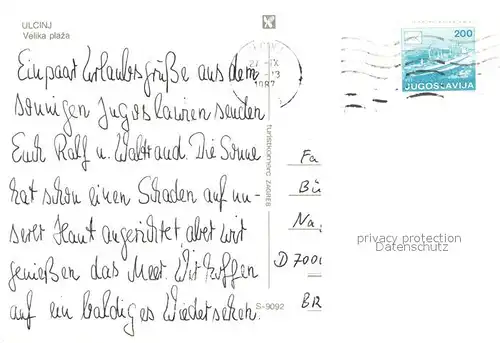 ULCINJ
Velika plaža
Ein paar Urlaubsgrüße aus dem
sonnigen Jugoslawien senden
Euch Ralf u. Waltraud. Die Sonne
hat schon einen Schaden auf un-
serer Haut angerichtet aber wir
genießen das Meer. Wir hoffen
auf ein baldiges Wiedersehen.
1987
turistkomerc ZAGREB
S-9092
200
JUGOSLAVIJA
Fa
Bü
Na
D 7000
privacy protection
Datenschutz